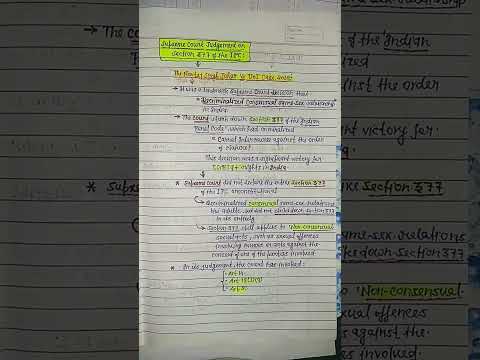 Supreme Court Judgement on
Section 377 of the IPC:
The Navtej Singh Johar Vs UOI Case, 2018:
→ It was a landmark Supreme Court decision that
decriminalized consensual same-sex relationship
in India.
→ The Court struck down Section 377 of the Indian
Penal Code, which had criminalized
"Carnal Intercourse against the order
of Nature".
This decision was a significant victory for
rights in India.
* Supreme Court did not declare the entire Section 377
of the IPC unconstitutional
Decriminalized consensual same-sex relations
Section 377
in its entirety
Section 377 still applies to 'Non-consensual
sexual acts, such as sexual offences
involving or acts against the
consent of one of the parties involved.
* In its judgement, the Court has invoked:
- Art 14
- Art
- Art 21
→ The Cou
of the Indian
Penal
inst the order
nt victory for
* Supre
ke Section 377
same-sex relations
ke down Section 377
'Non-consensual
exual offences
s against the
es involved.